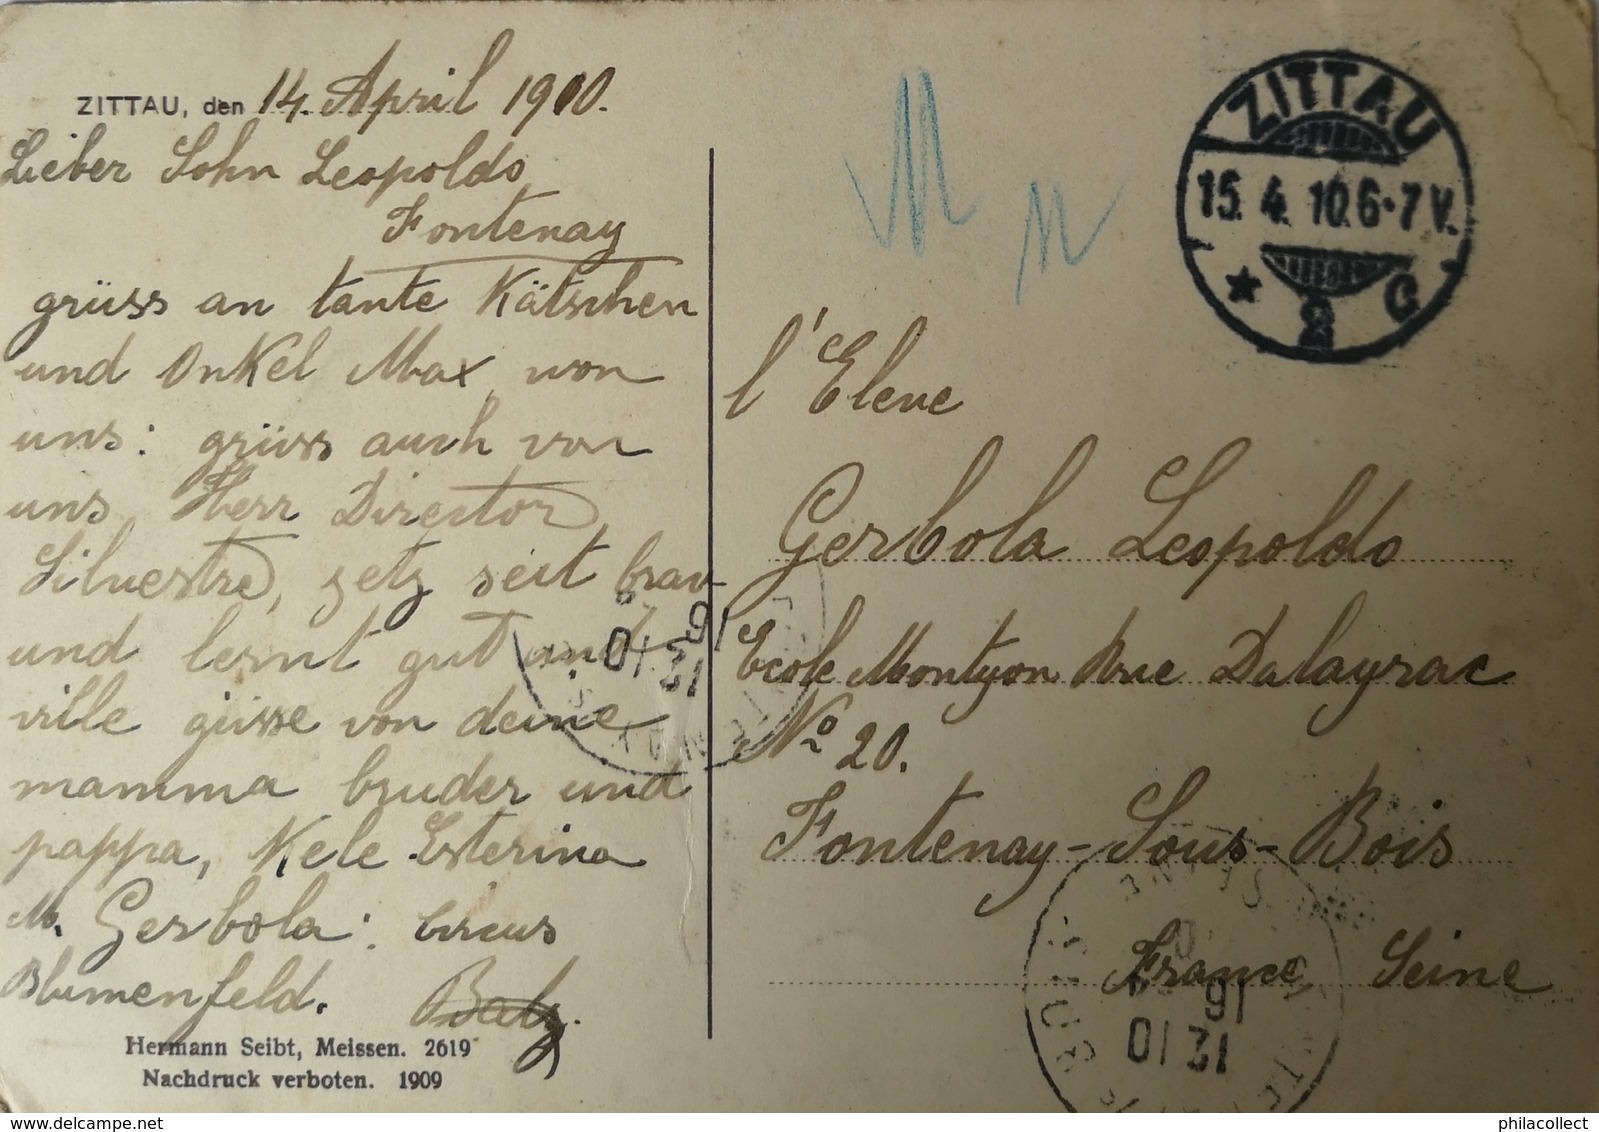 ZITTAU, den 14. April 1910.
Lieber Sohn Leopoldo
Fontenay
grüss an tante Kätschen
und Onkel Max von
uns: grüss auch von
uns Herr Director
Silvestre, setz seit brav
und lernt gut und
ville güsse von deine
mamma bruder und
pappa, Kele Esterina
M. Gerbola: Circus
Blumenfeld.
Hermann Seibt, Meissen. 2619
Nachdruck verboten. 1909
ZITTAU
15. 4. 10. 6-7 V.
* 2 c
l'Eleve
Gerbola Leopoldo
Ecole Montyon Rue Dalayrac
No 20.
Fontenay-Sous-Bois
France, Seine
16
12 31
10
16
12 31
10
philacollect